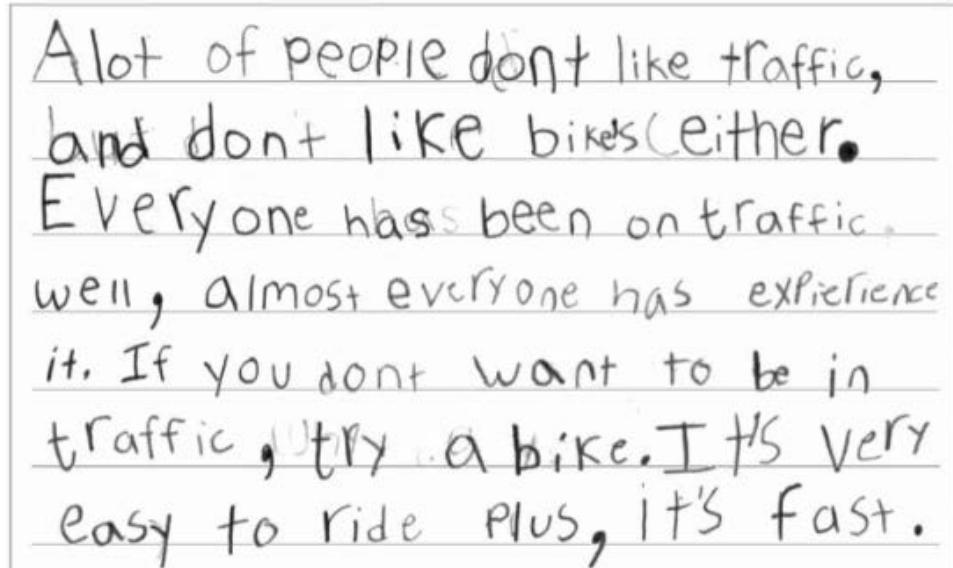 Alot of people dont like traffic,
and dont like bike's either.
Everyone has been on traffic.
well, almost everyone has expierience
it. If you dont want to be in
traffic, try a bike. It's very
easy to ride plus, it's fast.